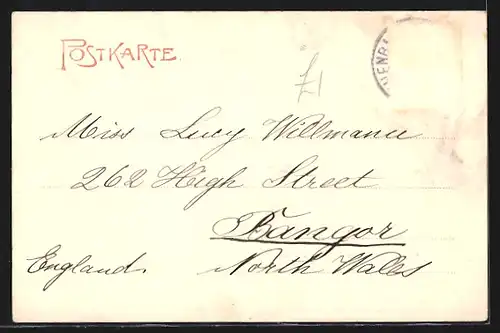 POSTKARTE
£1
Miss Lucy Willmance
262 High Street
Bangor
England. North Wales